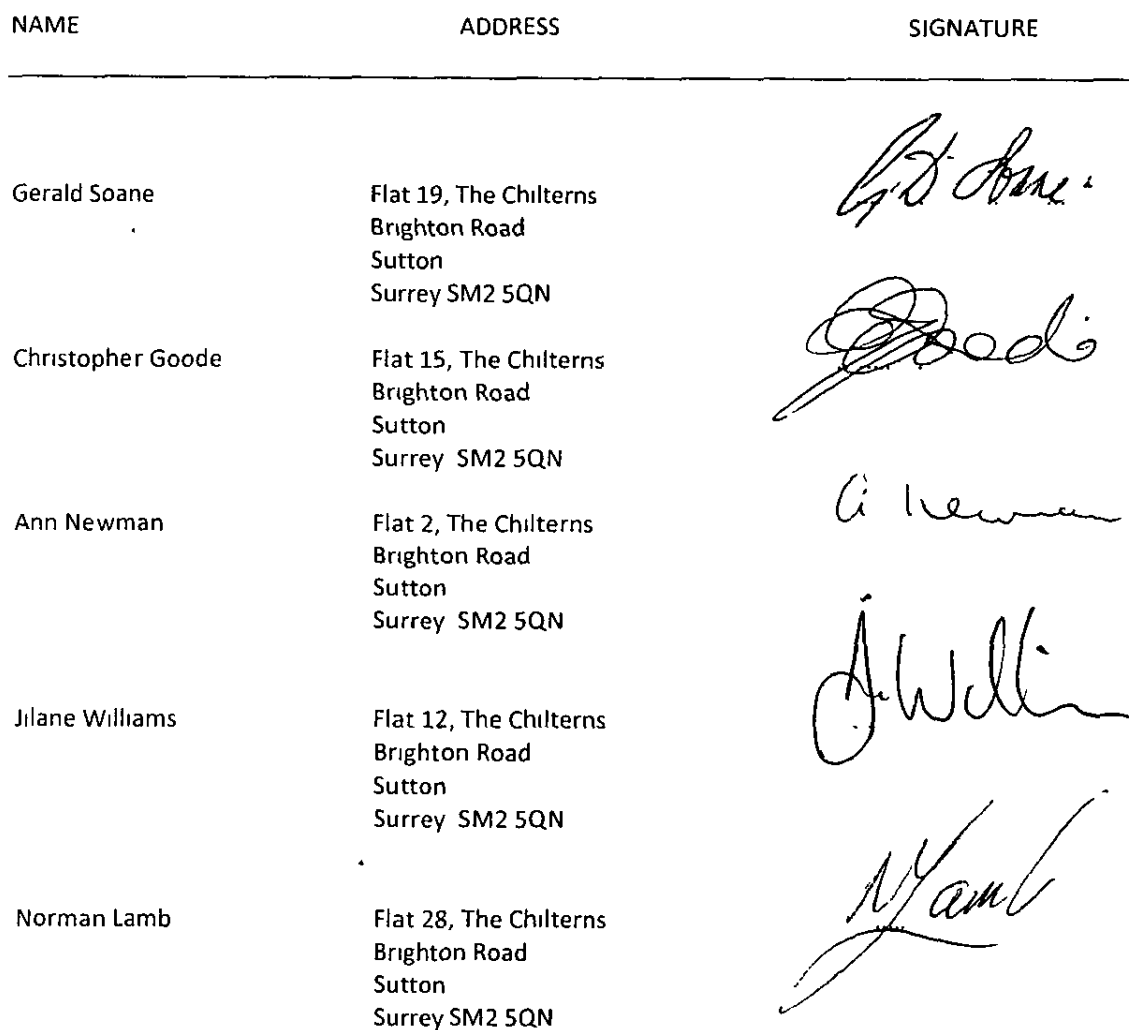 NAME ADDRESS SIGNATURE
Gerald Soane Flat 19, The Chilterns G D Soane
Brighton Road
Sutton
Surrey SM2 5QN
Christopher Goode Flat 15, The Chilterns Goode
Brighton Road
Sutton
Surrey SM2 5QN
Ann Newman Flat 2, The Chilterns a Newman
Brighton Road
Sutton
Surrey SM2 5QN
Jilane Williams Flat 12, The Chilterns J. Willi
Brighton Road
Sutton
Surrey SM2 5QN
Norman Lamb Flat 28, The Chilterns N Lamb
Brighton Road
Sutton
Surrey SM2 5QN